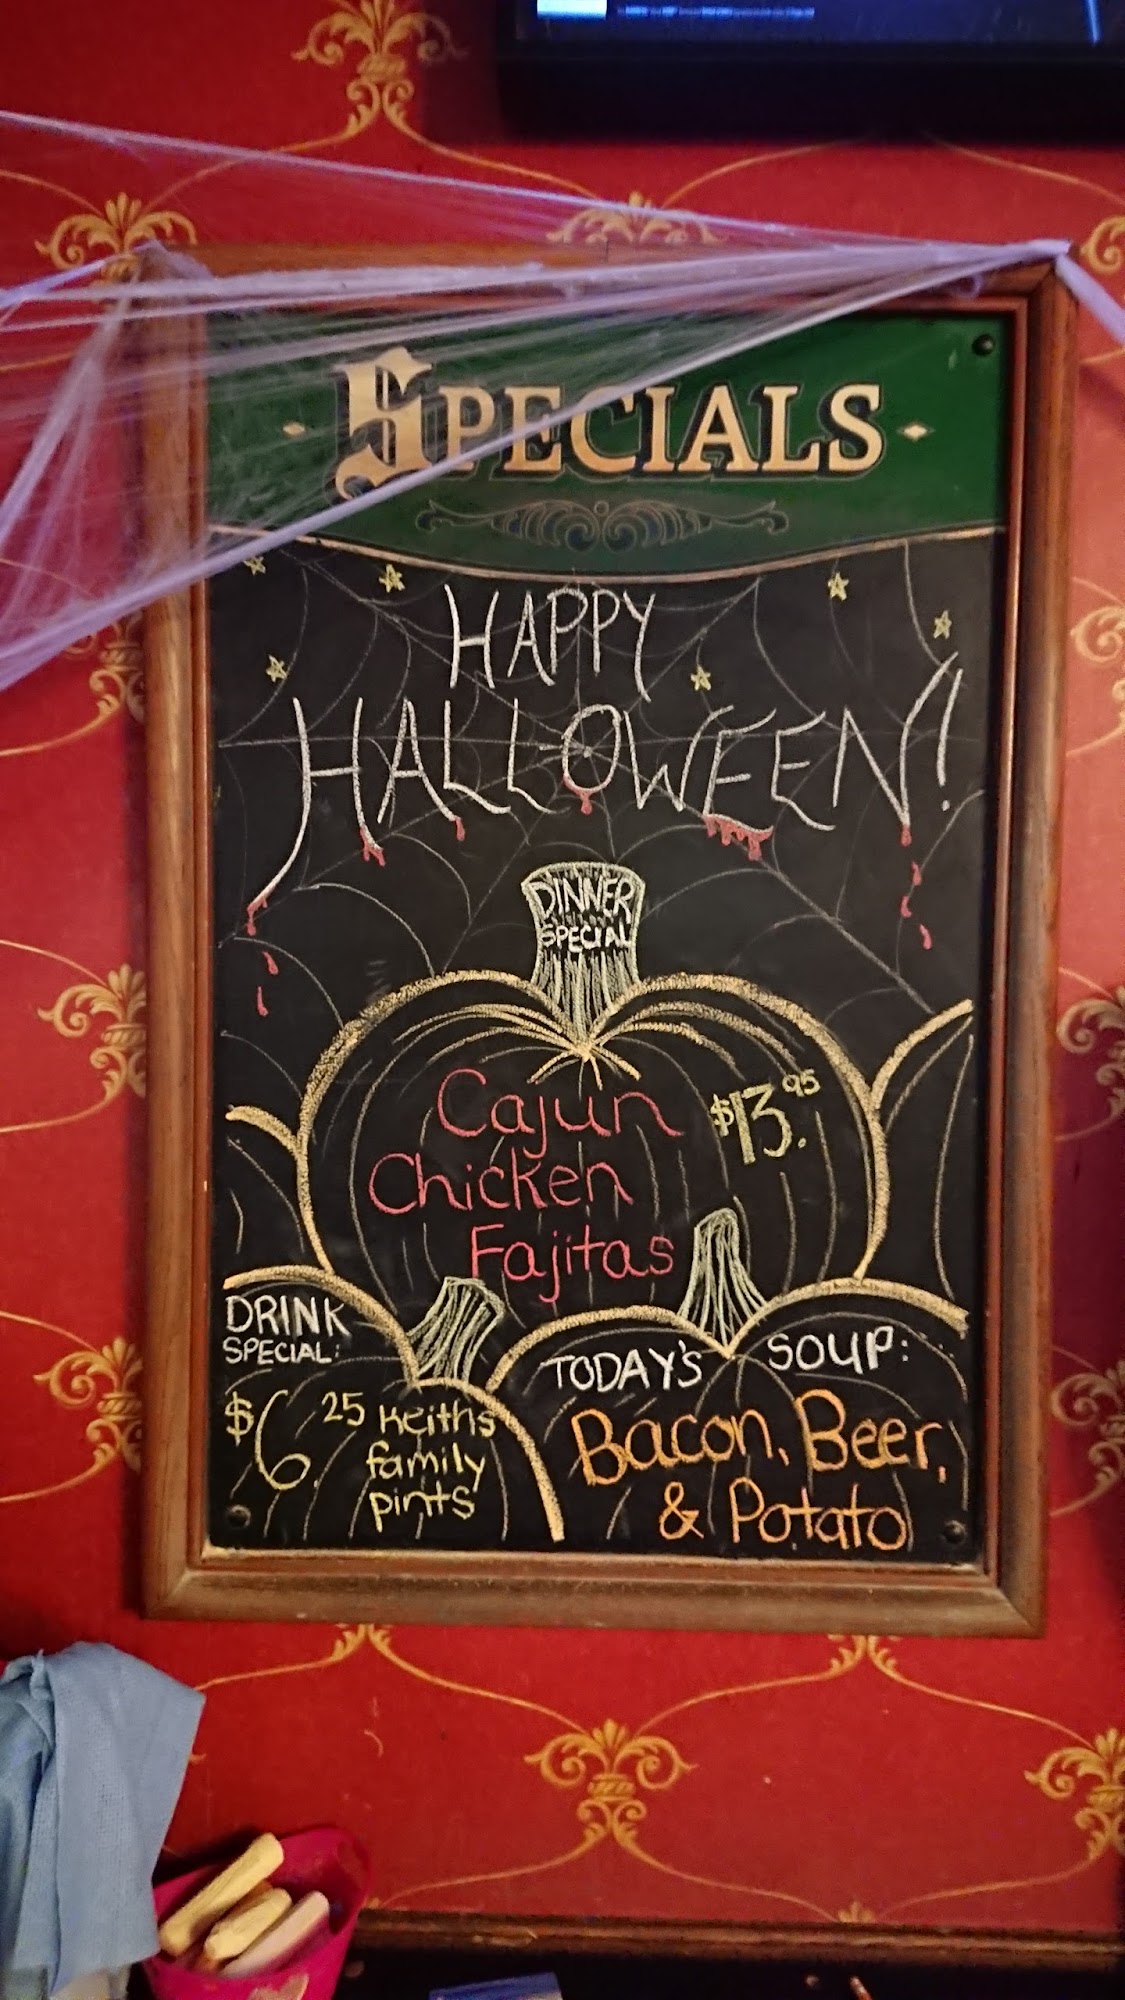 SPECIALS
HAPPY
HALLOWEEN!
DINNER
SPECIAL
Cajun $13.95
Chicken
Fajitas
DRINK
SPECIAL:
$6.25 Keiths
family
pints
TODAY'S SOUP:
Bacon, Beer,
& Potato